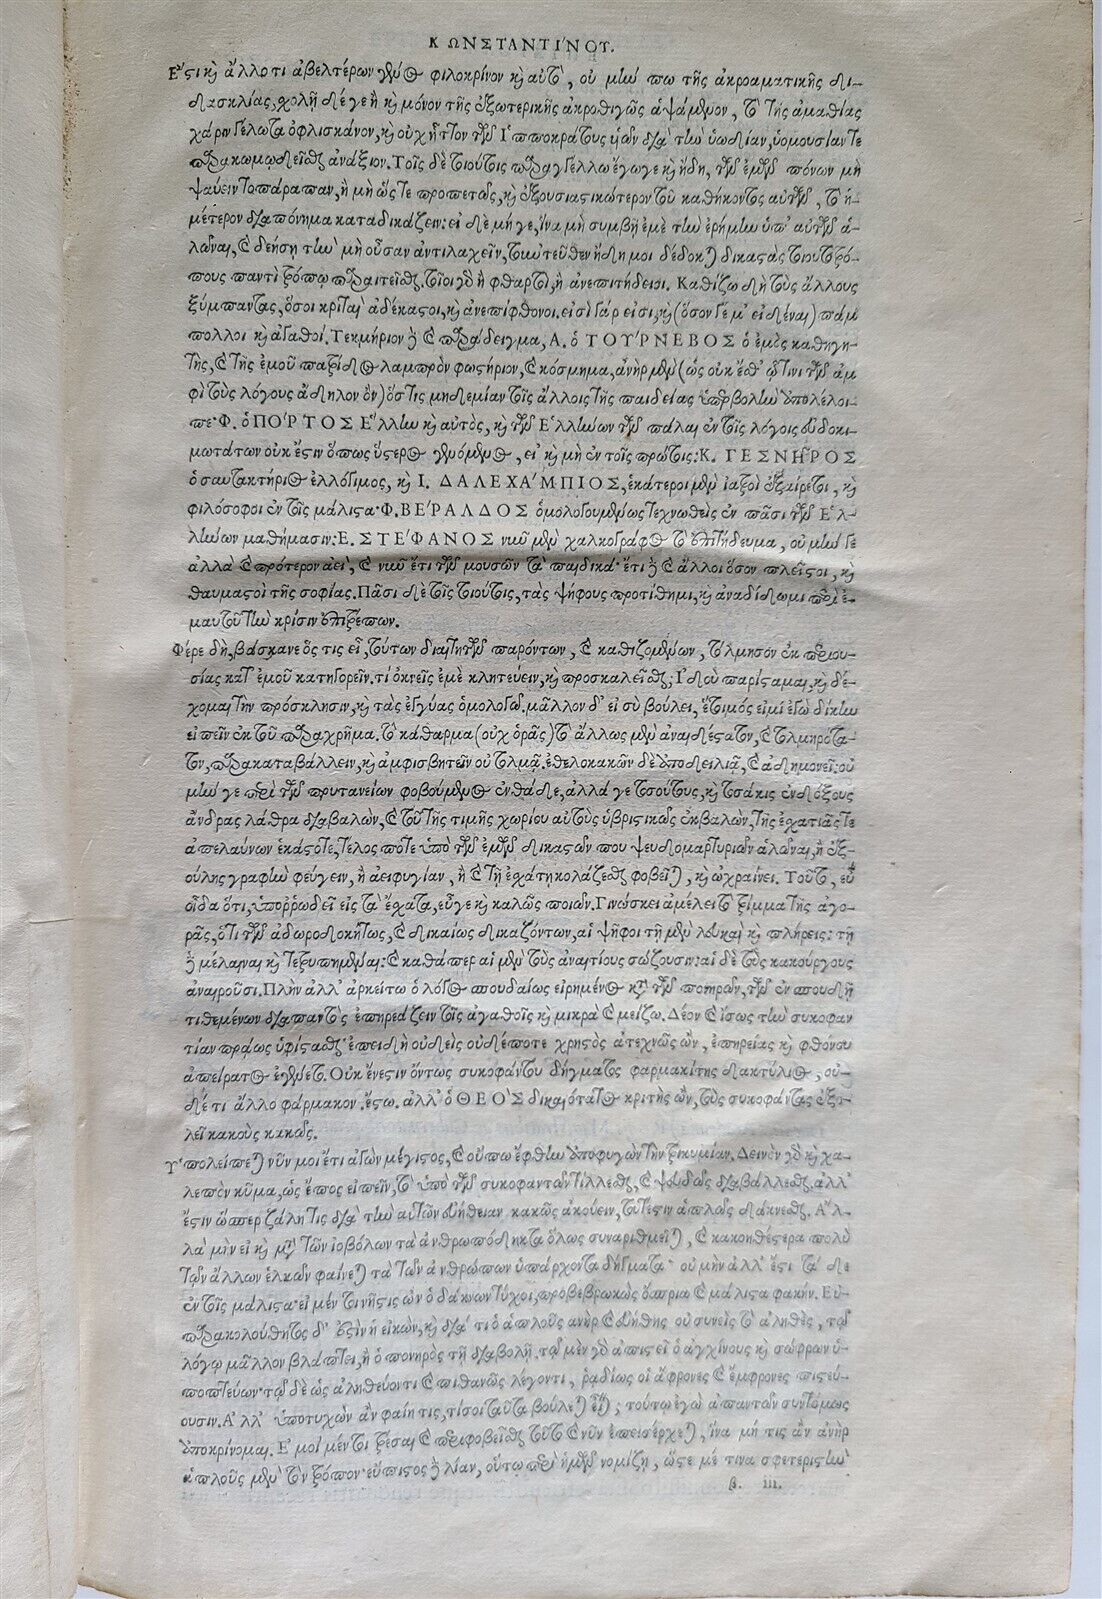 ΚΩΝΣΤΑΝΤΙΝΟΥ.
Ἔστι καὶ ἄλλο τι ἀβελτέρων γένος φιλοκρίνον καὶ αὐτὸ, οὐ μὴν πω τῆς ἀκροαματικῆς δι-
δασκαλίας, σχολῇ λέγε ἢ καὶ μόνον τῆς ἐξωτερικῆς ἀκροθιγῶς ἁψάμενον, τὸ τῆς ἀμαθίας
χάριν γέλωτα ὀφλισκάνον, καὶ οὐχ ἧττον τῶν Ἱπποκράτους ὑῶν διὰ τὴν ὑωδίαν, ὑομουσίαν τε
παρακωμῳδεῖσθαι ἀνάξιον. Τοῖς δὲ τοιούτοις παραγγέλλω ἔγωγε καὶ ἤδη, τῶν ἐμῶν πόνων μὴ
ψαύειν τοπάραπαν, ἢ μὴ ὥς τε προπετῶς, καὶ ἐξουσιαστικώτερον τοῦ καθήκοντος αὐτῶν, τὸ ἡ-
μέτερον διαπόνημα καταδικάζειν: εἰ δὲ μή γε, ἵνα μὴ συμβῇ ἐμὲ τὴν ἐρήμην ὑπ' αὐτῶν ἁ-
λῶναι, καὶ δεήσῃ τὴν μὴ οὖσαν ἀντιλαχεῖν, τηνικαῦτα
πους παντὶ τρόπῳ παραιτεῖσθαι. τοῖοι γὰρ ἢ φθαρτοὶ, ἢ ἀνεπιτήδειοι. Καθίζω δὴ τοὺς ἄλλους
ξύμπαντας, ὅσοι κριταὶ ἀδέκαστοι, καὶ ἀνεπίφθονοι. εἰσὶ γάρ εἰσι, καὶ (ὅσον γέ μ' εἰδέναι) πάμ
πολλοι καὶ ἀγαθοί. Τεκμήριον δὲ καὶ παράδειγμα, Α. ὁ ΤΟΥΡΝΕΒΟΣ ὁ ἐμὸς καθηγη-
τὴς, καὶ τῆς ἐμοῦ πατρίδος λαμπρὸν φωστήριον, καὶ κόσμημα, ἀνὴρ μὲν (ὡς οὐκ ἔσθ' ᾧτινι τῶν ἀμ
φὶ τοὺς λόγους ἄδηλον ὂν) ὅστις μηδεμίαν τοῖς ἄλλοις τῆς παιδείας ὑπερβολὴν ὑπολέλοι-
πε· Φ. ὁ ΠΟΡΤΟΣ Ἕλλην καὶ αὐτὸς, καὶ τῶν Ἑλλήνων τῶν πάλαι ἐν τοῖς λόγοις εὐδοκι-
μωτάτων οὐκ ἔστιν ὅπως ὕστερος γενόμενος, εἰ καὶ μὴ ἐν τοῖς πρώτοις: Κ. ΓΕΣΝΗΡΟΣ
ὁ ἐλλόγιμος, καὶ Ι. ΔΑΛΕΧΑΜΠΙΟΣ, ἑκάτεροι μὲν ἰατροὶ ἐξαίρετοι, καὶ
φιλόσοφοι ἐν τοῖς μάλιστα· Φ. ΒΕΡΑΛΔΟΣ ὁμολογουμένως τεχνωθεὶς ἐν πᾶσι τῶν Ἑλ-
λήνων μαθήμασιν: Ε. ΣΤΕΦΑΝΟΣ νῦν μὲν χαλκογράφος τὸ ἐπιτήδευμα, οὐ μήν γε
ἀλλὰ καὶ πρότερον ἀεὶ, καὶ νῦν ἔτι τῶν μουσῶν τὰ παιδικά· ἔτι δὲ καὶ ἄλλοι ὅσον πλεῖστοι, καὶ
θαυμαστοὶ τῆς σοφίας. Πᾶσι δὲ τοῖς τοιούτοις, τὰς ψήφους προτίθημι, καὶ ἀναδίδωμι περὶ ἐ-
μαυτοῦ τὴν κρίσιν ἐπιτρέπων.
Φέρε δὴ, βάσκανε ὅς τις εἶ, τούτων διαιτητῶν παρόντων, καὶ καθιζομένων, τόλμησον ἐκ περιου-
σίας κατ' ἐμοῦ κατηγορεῖν. τί ὀκνεῖς ἐμὲ κλητεύειν, καὶ προσκαλεῖσθαι; Ἰδοὺ παρίσταμαι, καὶ δέ-
χομαι τὴν πρόσκλησιν, καὶ τὰς ἐγγύας ὁμολογῶ. μᾶλλον δ' εἰ σὺ βούλει, ἕτοιμός εἰμι ἐγὼ δίκην
εἰπεῖν ἐκ τοῦ παραχρῆμα. τὸ κάθαρμα (οὐχ ὁρᾷς) τὸ ἄλλως μὲν ἀναιδέστατον, καὶ τολμηρότα-
τον, παρακαταβάλλειν, καὶ ἀμφισβητεῖν οὐ τολμᾷ. ἐθελοκακῶν δὲ ἀποδειλιᾷ, καὶ ἀδημονεῖ: οὐ
μήν γε περὶ τῶν πρυτανείων φοβούμενος ἐνθάδε, ἀλλά γε τοσούτους, καὶ τοσάκις ἐνδόξους
ἄνδρας λάθρα διαβαλὼν, καὶ τοῦ τῆς τιμῆς χωρίου αὐτοὺς ὑβριστικῶς ἐκβαλὼν, τῆς ἐσχατιᾶς τε
ἀπελαύνων ἑκάστοτε, τέλος πότε ὑπὸ τῶν ἐμῶν δικαστῶν που ψευδομαρτυριῶν ἁλῶναι, ἢ ἐξ-
ούλης γραφὴν φεύγειν, ἢ ἀειφυγίαν, ἢ καὶ τῇ ἐσχάτῃ κολάζεσθαι φοβεῖται, καὶ ὠχραίνει. Τοῦτο, εὖ
οἶδα ὅτι, ὑποῤῥωδεῖ εἰς τὰ ἔσχατα, εὖγε καὶ καλῶς ποιῶν. Γινώσκει ἀμέλει τὸ τρίμμα τῆς ἀγο-
ρᾶς, ὅτι τῶν ἀδωροδοκήτως, καὶ δικαίως δικαζόντων, αἱ ψῆφοι τῇ μὲν λευκαὶ καὶ πλήρεις: τῇ
δὲ μέλαιναι καὶ τετρυπημέναι: καὶ καθάπερ αἱ μὲν τοὺς ἀναιτίους σώζουσιν: αἱ δὲ τοὺς κακούργους
ἀναιροῦσι. Πλὴν ἀλλ' ἀρκείτω ὁ λόγος σπουδαίως εἰρημένος κατὰ τῶν πονηρῶν, τῶν ἐν σπουδῇ
τιθεμένων διαπαντὸς ἐπηρεάζειν τοῖς ἀγαθοῖς καὶ μικρὰ καὶ μείζω. Δέον καὶ ἴσως τὴν συκοφαν
τίαν πράως ὑφίστασθαι· ἐπειδὴ οὐδεὶς οὐδέποτε χρηστὸς ἀτεχνῶς ὢν, ἐπηρείας καὶ φθόνου
ἀπείρατος ἐγένετο. Οὐκ ἔνεστιν ὄντως συκοφάντου δήγματος φαρμακίτης δακτύλιος, οὐ-
δέ τι ἄλλο φάρμακον. ἔστω. ἀλλ' ὁ ΘΕΟΣ δικαιότατος κριτὴς ὢν, τοὺς συκοφάντας ἐξο-
λεῖ κακοὺς κακῶς.
Ὑπολείπεται νῦν μοι ἔτι ἀγὼν μέγιστος, καὶ οὔπω ἔφθην ὑποφυγὼν τὴν τρικυμίαν. Δεινὸν γὰρ καὶ χα-
λεπὸν κῦμα, ὡς ἔπος εἰπεῖν, τὸ ὑπὸ τῶν συκοφαντῶν τίλλεσθαι, καὶ ψευδῶς διαβάλλεσθαι. ἀλλ'
ἔστιν ὥσπερ ζάλη τις διὰ τὴν αὑτῶν εὐήθειαν κακῶς ἀκούειν, τοῦτέστιν ἁπλῶς δάκνεσθαι. Ἀλ-
λὰ μὴν εἰ καὶ μετὰ τῶν ἰοβόλων τὰ ἀνθρωπόδηκτα ὅλως συναριθμεῖται, καὶ κακοηθέστερα πολὺ
τῶν ἄλλων ἑλκῶν φαίνεται τὰ τῶν ἀνθρώπων ὑπάρχοντα δήγματα· οὐ μὴν ἀλλ' ἔστι τά δε
ἐν τοῖς μάλιστα· εἰ μέν τοι νῆστις ὢν ὁ δάκνων τύχοι, προβεβρωκὼς ὄσπρια καὶ μάλιστα φακήν. Εὐ-
παρακολούθητος δ' ἐστὶν ἡ εἰκὼν, καὶ διὰ τί ὁ ἁπλοῦς ἀνὴρ καὶ εὐήθης οὐ συνεὶς τὸ ἀληθὲς, τῷ
λόγῳ μᾶλλον βλάπτει, ἢ ὁ πονηρὸς τῇ διαβολῇ. τῷ μὲν γὰρ ἀπιστεῖ ὁ ἀγχίνους καὶ σώφρων ὑ-
ποπτεύων· τῷ δὲ ὡς ἀληθεύοντι καὶ πιθανῶς λέγοντι, ῥᾳδίως οἱ ἄφρονες καὶ ἔμφρονες πιστεύ-
ουσιν. Ἀλλ' ὑποτυχὼν ἂν φαίη τις, τί σοι ταῦτα βούλεται εἶναι; τούτῳ ἐγὼ ἀπαντῶν συντόμως
ἀποκρίνομαι. Ἐμοὶ μέντοι τρέσαι καὶ περιφοβεῖσθαι τοῦτο καὶ νῦν ἐπεισέρχεται, ἵνα μή τις ἂν ἀνὴρ
ἁπλοῦς μὲν τὸν τρόπον· εὔπιστος δὲ λίαν, οὕτω περὶ ἡμῶν νομίζῃ, ὥστε μέ τινα σφετεριστὴν
β. iii.